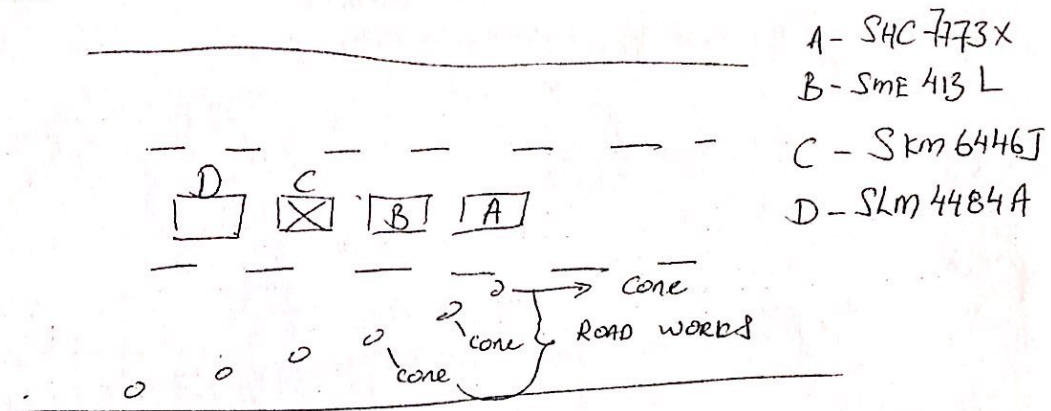 A - SHC 7773X
B - SmE 413 L
C - SKm 6446J
D - SLM 4484A
D
C
B
A
cone
cone
ROAD WORKS
cone